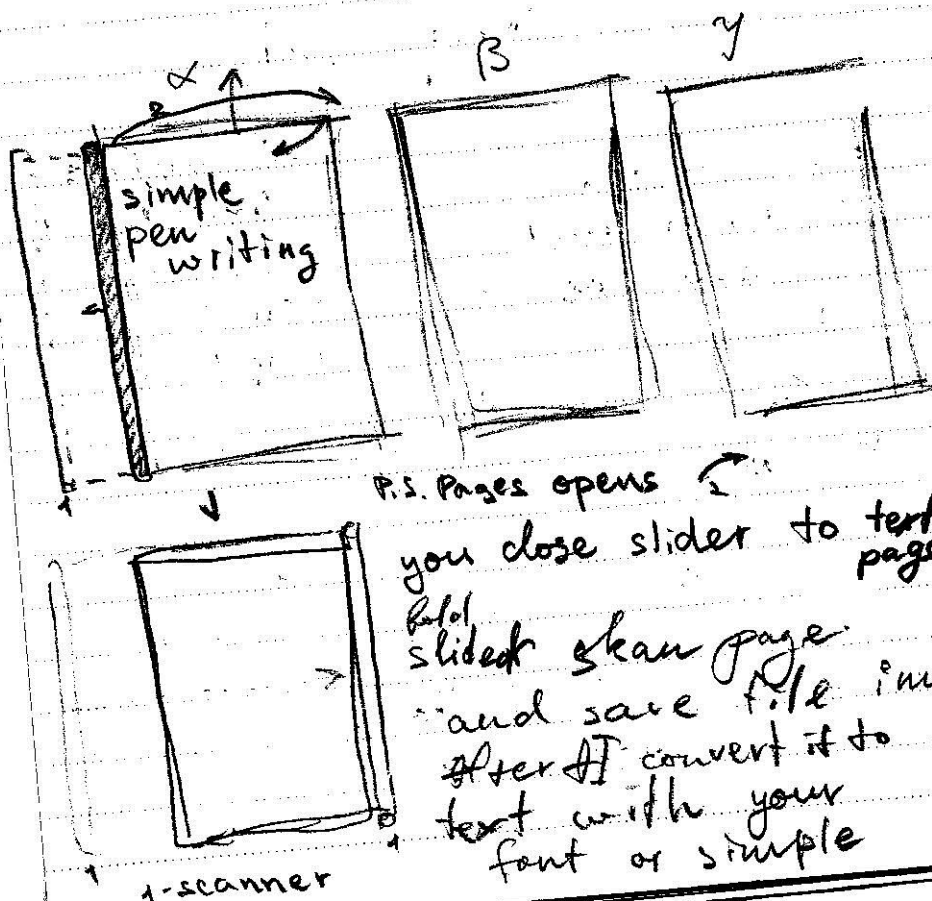 α β γ
2
simple
pen
writing
1
P.S. Pages opens 2
you close slider to
page
slider skan page.
and save file im
After AI convert it to
text with your
font or simple
1 1
1-scanner